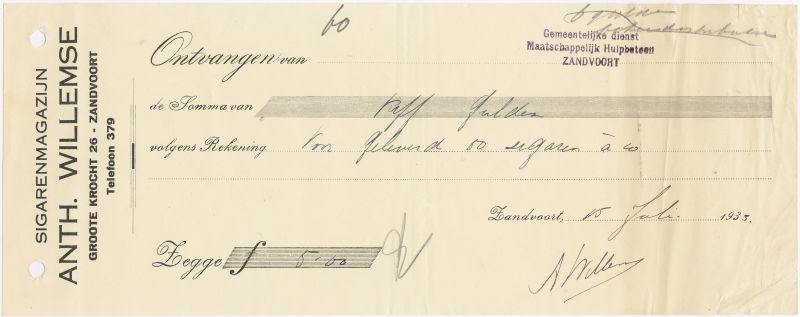 SIGARENMAGAZIJN
ANTH. WILLEMSE
GROOTE KROCHT 26 - ZANDVOORT
Telefoon 379
60
Gemeentelijke dienst
Maatschappelijk Hulpbeteen
ZANDVOORT
Ontvangen van
de Somma van Vijf Gulden
volgens Rekening Voor Geleverd 50 sigaren à 10
Zandvoort, 15 Juli 1933.
Zegge f 5.00
A Willemse